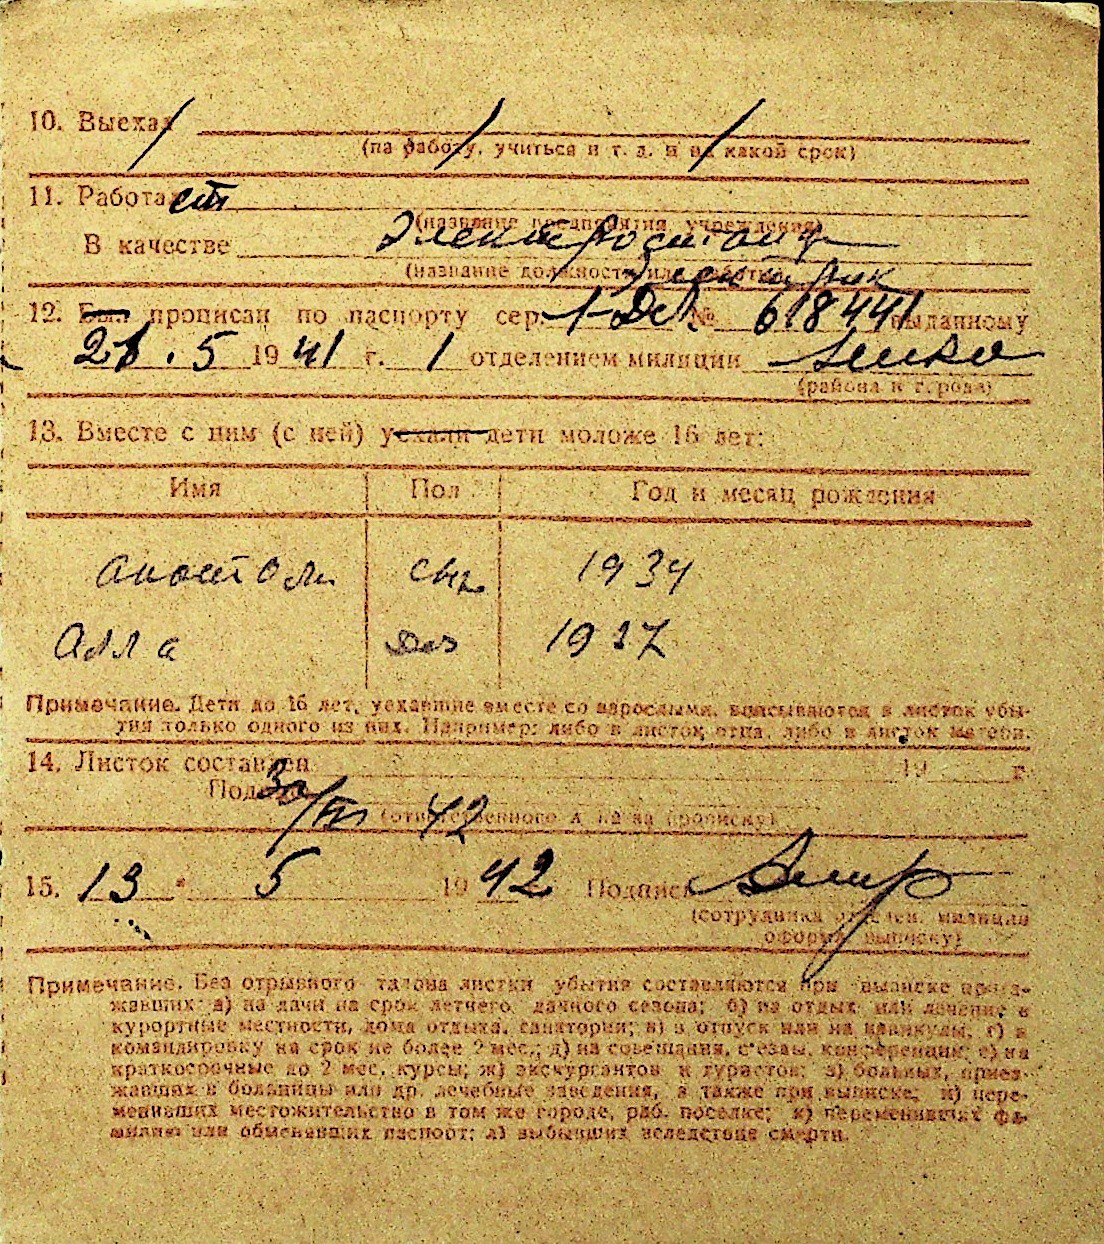 10. Выехал
(на работу, учиться и т. д. и на какой срок)
11. Работает
(название предприятия, учреждения)
В качестве Электростанция
(название должности или работы)
электрик
12. Был прописан по паспорту сер. 1-ДСК № 618441 выданному
21.5 1941 г. 1 отделением милиции
(района и города)
13. Вместе с ним (с ней) уехали дети моложе 16 лет:
Имя Пол Год и месяц рождения
Анатоли сын 1934
Алла доч 1937
Примечание. Дети до 16 лет, уехавшие вместе со взрослыми, вписываются в листок убы-
тия только одного из них. Например: либо в листок отца, либо в листок матери.
14. Листок составлен 19 г.
Подпись
30/III 42
(ответственного л-ца за прописку)
15. 13 " 5 1942 Подпись
(сотрудника отделен. милиции
оформ. выписку)
Примечание. Без отрывного талона листки убытия составляются при выписке приез-
жавших: а) на дачи на срок летнего дачного сезона; б) на отдых или лечение в
курортные местности, дома отдыха, санатории; в) в отпуск или на каникулы; г) в
командировку на срок не более 2 мес.; д) на совещания, съезды, конференции; е) на
краткосрочные до 2 мес. курсы; ж) экскурсантов и туристов; з) больных, приез-
жавших в больницы или др. лечебные заведения, а также при выписке; и) пере-
менивших местожительство в том же городе, раб. поселке; к) переменивших фа-
милию или обменявших паспорт; л) выбывших вследствие смерти.